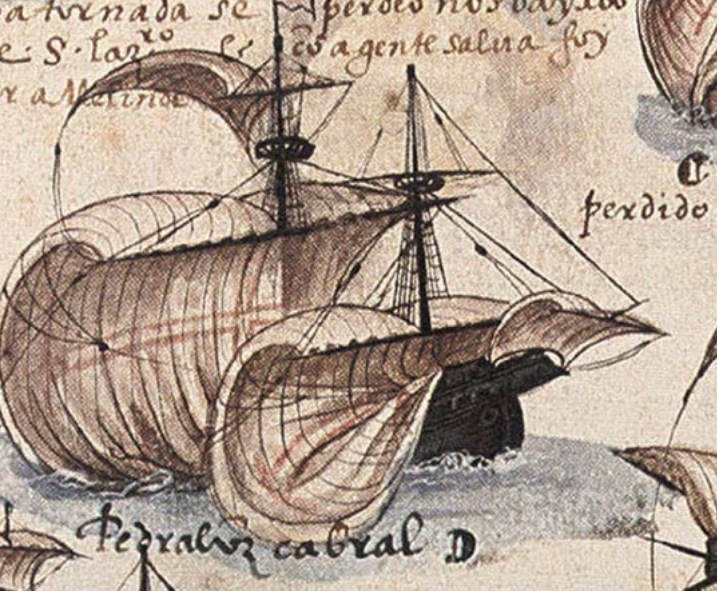 a tornada se perdeo nos bayxos
e. S. lazro cõ a gente salva foy
r a Melinde
perdido
Pedralvrz cabral D